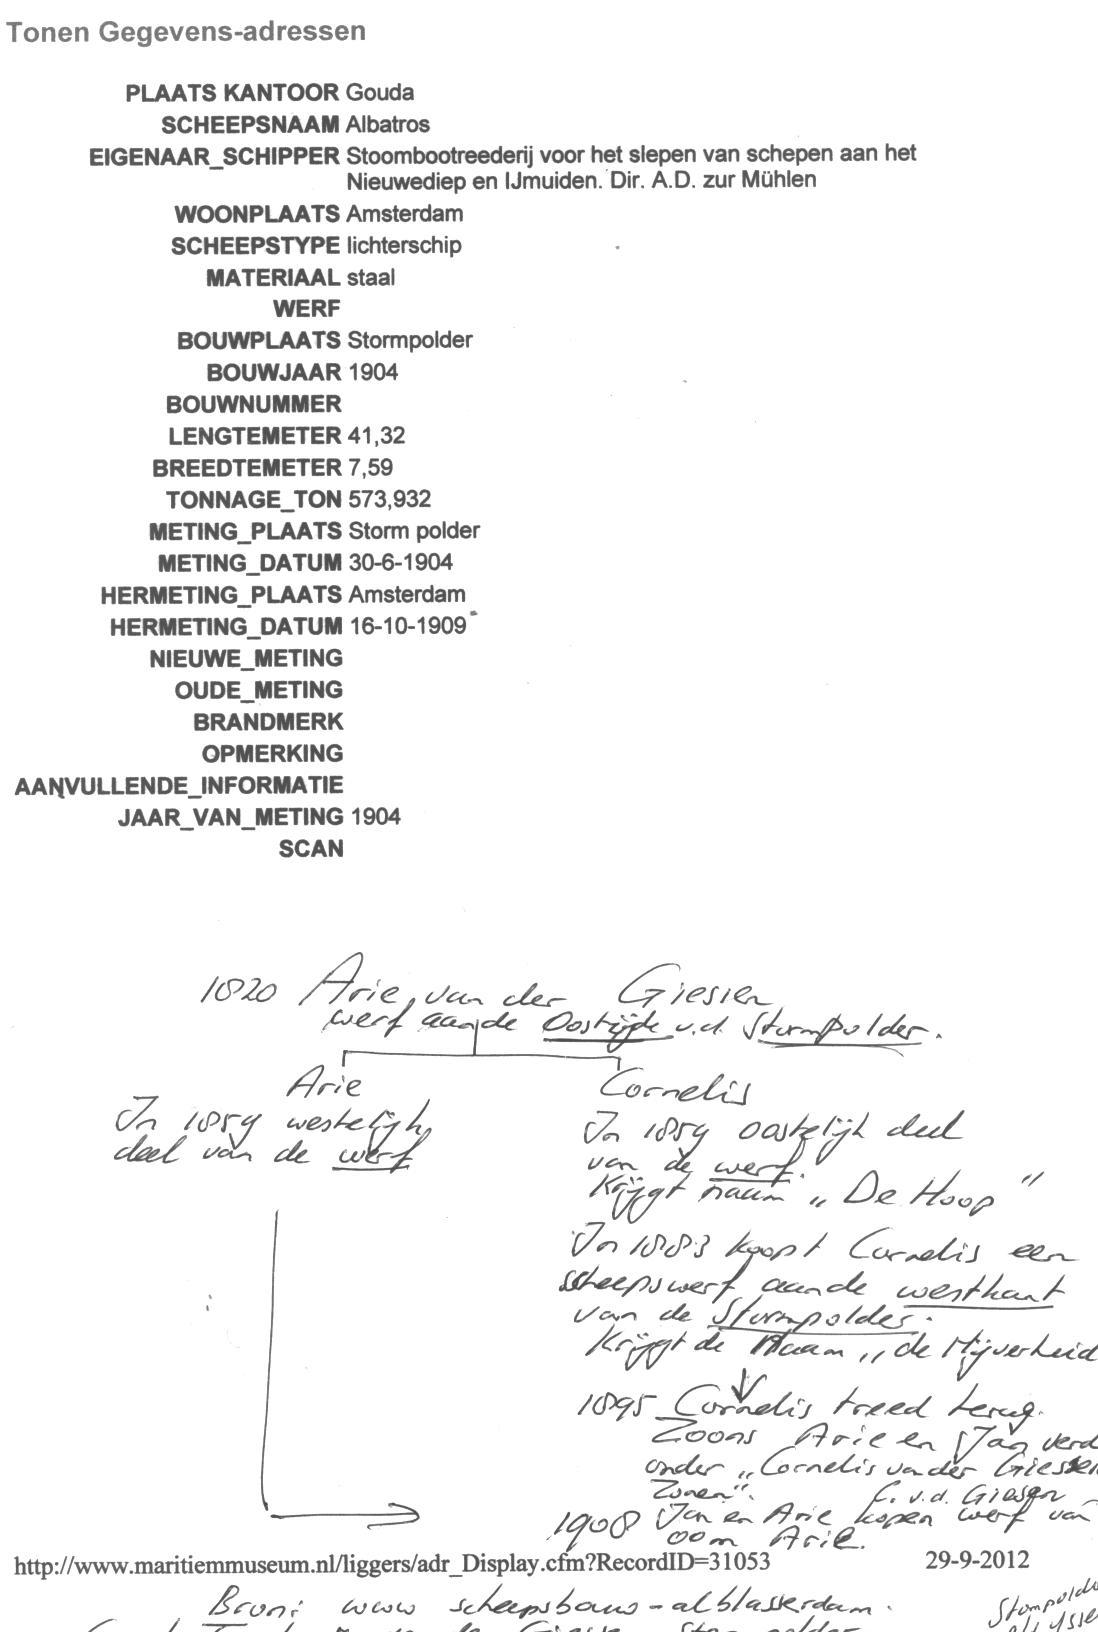 Tonen Gegevens-adressen
PLAATS KANTOOR Gouda
SCHEEPSNAAM Albatros
EIGENAAR_SCHIPPER Stoombootreederij voor het slepen van schepen aan het
Nieuwediep en IJmuiden. Dir. A.D. zur Mühlen
WOONPLAATS Amsterdam
SCHEEPSTYPE lichterschip
MATERIAAL staal
WERF
BOUWPLAATS Stormpolder
BOUWJAAR 1904
BOUWNUMMER
LENGTEMETER 41,32
BREEDTEMETER 7,59
TONNAGE_TON 573,932
METING_PLAATS Storm polder
METING_DATUM 30-6-1904
HERMETING_PLAATS Amsterdam
HERMETING_DATUM 16-10-1909
NIEUWE_METING
OUDE_METING
BRANDMERK
OPMERKING
AANVULLENDE_INFORMATIE
JAAR_VAN_METING 1904
SCAN
1820 Arie van der Giessen
werf aan de Oostzijde v.d. Stormpolder.
Arie
In 1859 westelijk
deel van de werf
Cornelis
In 1859 oostelijk deel
van de werf.
Krijgt naam „De Hoop"
In 1883 koopt Cornelis een
scheepswerf aan de westkant
van de Stormpolder.
Krijgt de Naam „de Nijverheid
1895 Cornelis treed terug.
Zoons Arie en Jan verd
onder „Cornelis van der Giessen
Zonen".
C. v.d. Giessen
1908 Jan en Arie kopen werf van
oom Arie.
http://www.maritiemmuseum.nl/liggers/adr_Display.cfm?RecordID=31053 29-9-2012
Bron: www scheepsbouw-alblasserdam.